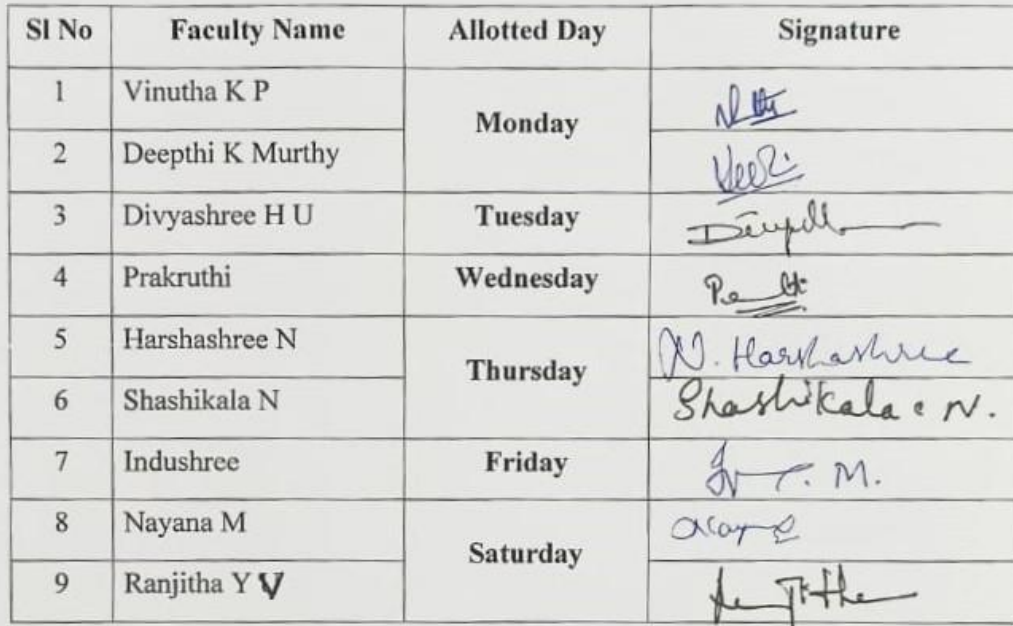 Sl No Faculty Name Allotted Day Signature
1 Vinutha K P
Monday
2 Deepthi K Murthy
3 Divyashree H U Tuesday
4 Prakruthi Wednesday
5 Harshashree N N. Harshashree
Thursday
6 Shashikala N Shashikala . N.
7 Indushree Friday M.
8 Nayana M
Saturday
9 Ranjitha Y V